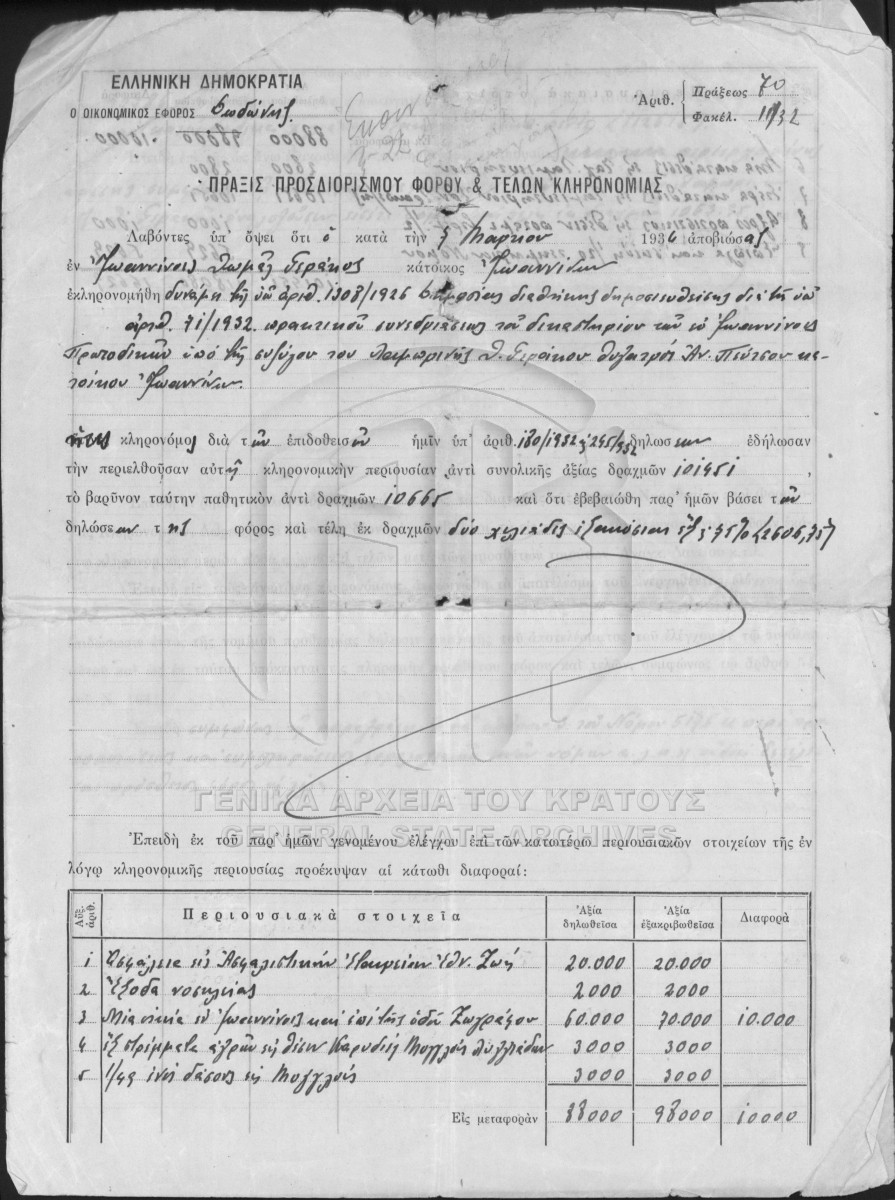 ΕΛΛΗΝΙΚΗ ΔΗΜΟΚΡΑΤΙΑ
Ο ΟΙΚΟΝΟΜΙΚΟΣ ΕΦΟΡΟΣ Δωδώνης
Ἀριθ. Πράξεως 70
Φακέλ. 11/32
ΠΡΑΞΙΣ ΠΡΟΣΔΙΟΡΙΣΜΟΥ ΦΟΡΟΥ & ΤΕΛΩΝ ΚΛΗΡΟΝΟΜΙΑΣ
Λαβόντες ὑπ' ὄψει ὅτι ὁ κατὰ τὴν Μαρτίου 193 ἀποβιώσας
ἐν Ἰωαννίνοις Θωμᾶς Γεράκος κάτοικος Ἰωαννίνων
ἐκληρονομήθη δυνάμει τῆς ὑπ' ἀριθ. 1308/1926 δημοσίας διαθήκης δημοσιευθείσης διὰ τοῦ ὑπ'
ἀριθ. 71/1932 πρακτικοῦ συνεδριάσεως τοῦ δικαστηρίου τῶν ἐν Ἰωαννίνοις
Πρωτοδικῶν ὑπὸ τῆς συζύγου του Θ. Γεράκου θυγατρὸς Ἀν. κα-
τοίκου Ἰωαννίνων.
κληρονόμος διὰ τῶν ἐπιδοθεισῶν ἡμῖν ὑπ' ἀριθ. 180/1932 245/932 δηλώσεων ἐδήλωσαν
τὴν περιελθοῦσαν αὐτῇ κληρονομικὴν περιουσίαν ἀντὶ συνολικῆς ἀξίας δραχμῶν 101451 ,
τὸ βαρῦνον ταύτην παθητικὸν ἀντὶ δραχμῶν 10665 καὶ ὅτι ἐβεβαιώθη παρ' ἡμῶν βάσει τῶν
δηλώσεων της φόρος καὶ τέλη ἐκ δραχμῶν δύο χιλιάδες ἑξακόσιαι ἓξ 75% (2606,75)
ΓΕΝΙΚΑ ΑΡΧΕΙΑ ΤΟΥ ΚΡΑΤΟΥΣ
GENERAL STATE ARCHIVES
Ἐπειδὴ ἐκ τοῦ παρ' ἡμῶν γενομένου ἐλέγχου ἐπὶ τῶν κατωτέρω περιουσιακῶν στοιχείων τῆς ἐν
λόγῳ κληρονομικῆς περιουσίας προέκυψαν αἱ κάτωθι διαφοραί:
Αὔξ. ἀριθ. Περιουσιακὰ στοιχεῖα Ἀξία δηλωθεῖσα Ἀξία ἐξακριβωθεῖσα Διαφορὰ
1 Ἀσφάλεια εἰς Ἀσφαλιστικὴν Ἑταιρείαν Ἐθν. Ζωή 20.000 20.000
2 Ἔξοδα νοσηλείας 2000 2000
3 Μία οἰκία ἐν Ἰωαννίνοις καὶ ἐπὶ τῆς ὁδοῦ Ζωγράφου 60.000 70.000 10.000
4 ἓξ στρέμματα ἀγρῶν εἰς θέσιν 3000 3000
5 1/49 ἑνὸς δάσους εἰς 3000 3000
Εἰς μεταφορὰν 88000 98000 10000